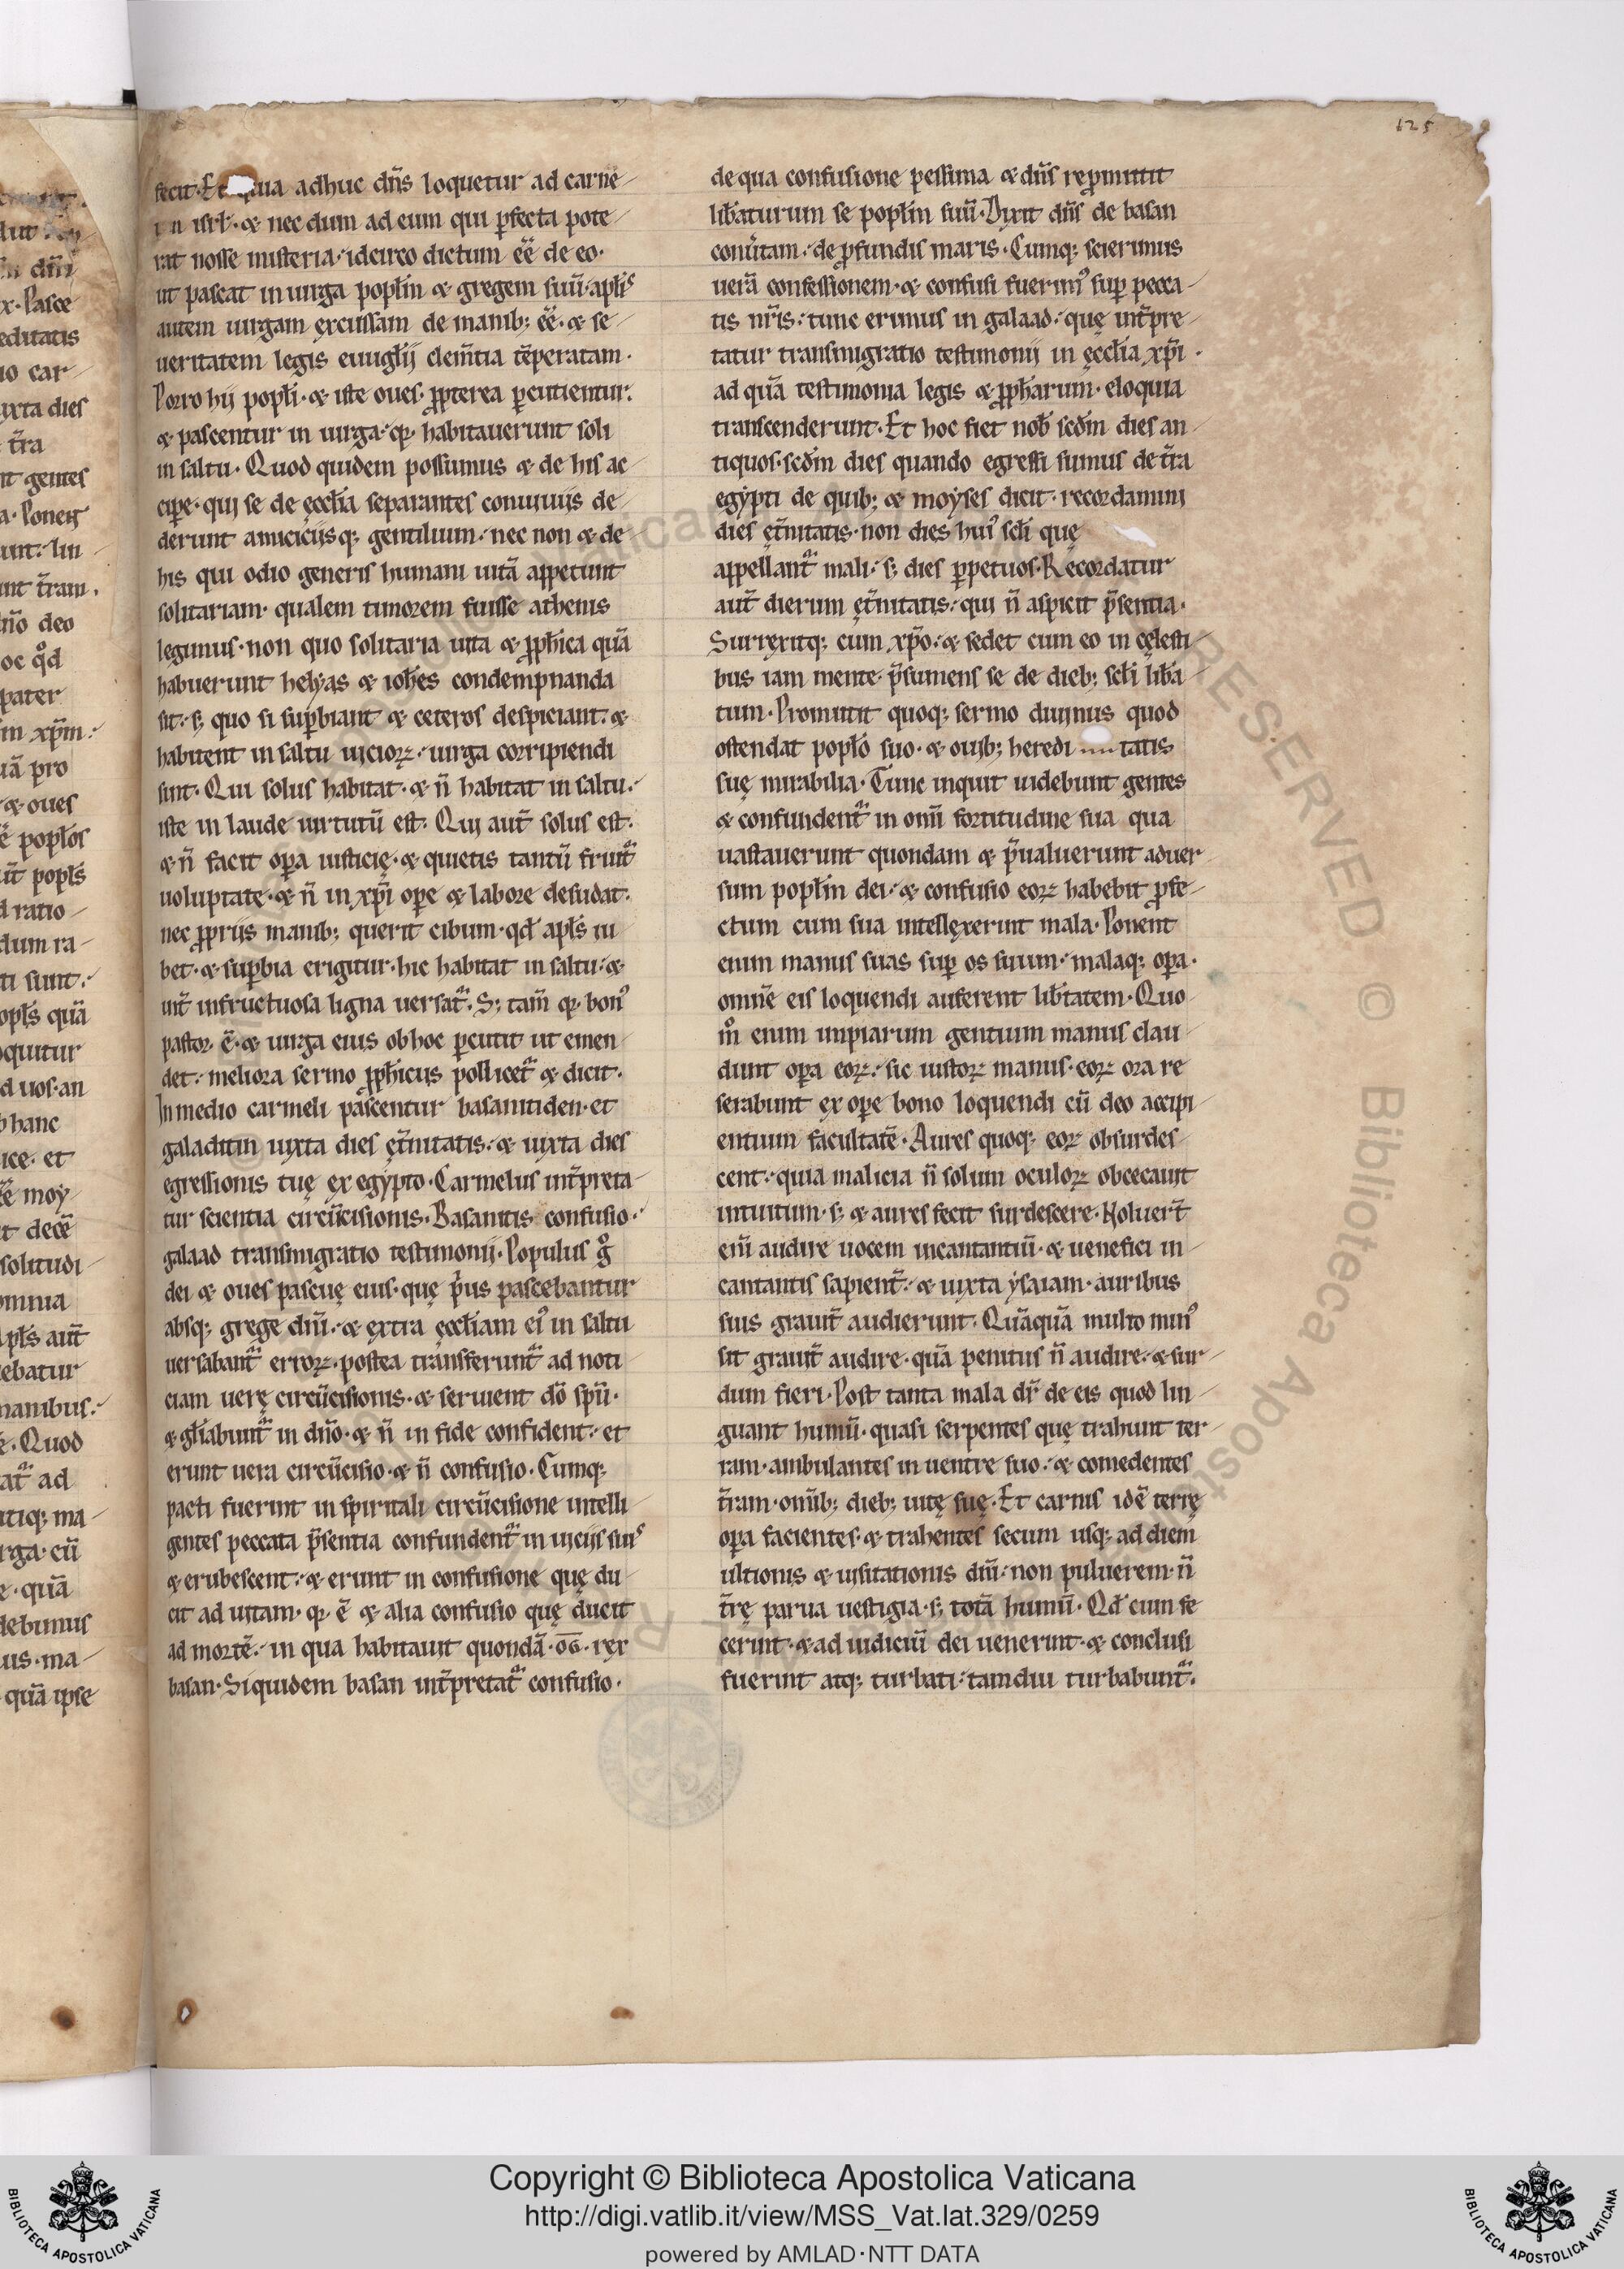 125
fecit. Et quia adhuc dñs loquetur ad carne
m isrł. & nec dum ad eum qui pfecta pote
rat nosse misteria. idcirco dictum eẽ de eo.
ut pascat in uirga popłm & gregem suũ. apłi⁹
autem uirgam excussam de manib; eẽ. & se
ueritatem legis euuglij clem̃tia tẽperatam.
Porro hij popłi. & iste oues. ppterea pcutientur.
& pascentur in uirga. qꝛ habitauerunt soli
in saltu. Quod quidem possumus & de his ac
cipe. qui se de ęccłia separantes conuiuijs de
derunt amicicijsq; gentilium. nec non & de
his qui odio generis humani uitã appetunt
solitariam. qualem timorem fuisse athenis
legimus. non quo solitaria uita & pphica quã
habuerunt helyas & iohes condempnanda
sit. s; quo si supbiant & ceteros despiciant. &
habitent in saltu uicioꝝ. uirga corripiendi
sint. Qui solus habitat. & ñ habitat in saltu.
iste in laude uirtutũ est. Qui aut̃ solus est.
& ñ facit opa iusticię. & quietis tantũ fruit̃
uoluptate. & ñ in xp̃i ope & labore desudat.
nec pprijs manib; querit cibum. qđ apłs iu
bet. & supbia erigitur. hic habitat in saltu. &
int̃ infructuosa ligna uersat̃. S; tam̃ qꝛ bon⁹
pastor ẽ. & uirga eius ob hoc pcutit ut emen
det. meliora sermo pphicus pollicet̃ & dicit.
In medio carmeli pascentur basanitiden. et
galaditin iuxta dies ęt̃nitatis. & iuxta dies
egressionis tuę ex egypto. Carmelus int̃preta
tur scientia circũcisionis. Basanitis confusio.
galaad transmigratio testimonij. Populus g̊
dei & oues pascuę eius. quę p̃us pascebantur
absq; grege diũi. & extra ęccłiam ei⁹ in saltu
uersabant̃ erroꝝ. postea transferunt̃ ad noti
ciam uerę circũcisionis. & seruient dõ spũ.
& głiabunt̃ in dño. & ñ in fide confident. et
erunt uera circũcisio. & ñ confusio. Cumq;
pacti fuerint in spiritali circũcisione intelli
gentes peccata p̃sentia confundent̃ in uicijs suis
& erubescent. & erunt in confusione quę du
cit ad uitam. qꝛ ẽ & alia confusio quę ducit
ad mortẽ. in qua habitauit quondã. og. rex
basan. Siquidem basan int̃pretat̃ confusio.
de qua confusione pessima & dñs repmittit
libaturum se popłm suũ. Dixit dñs de basan
conũtam. de pfundis maris. Cumq; scierimus
uerã confessionem. & confusi fuerim⁹ sup pecca
tis nr̃is. tunc erimus in galaad. quę int̃pre
tatur transmigratio testimonij in ęccłia xp̃i.
ad quã testimonia legis & ppharum. eloquia
transcenderunt. Et hoc fiet nob scđm dies an
tiquos. scđm dies quando egressi sumus de t̃ra
egypti de quib; & moyses dicit. recordamini
dies ęt̃nitatis. non dies hui⁹ scłi quę
appellant̃ mali. s; dies ppetuos. Recordatur
aut̃ dierum ęt̃nitatis. qui ñ aspicit p̃sentia.
Surręxitq; cum xp̃o. & sedet cum eo in cęlesti
bus iam mente. p̃sumens se de dieb; scłi liba
tum. Promittit quoq; sermo diuinus quod
ostendat popło suo. & ouib; heredi tatis
suę mirabilia. Tunc inquit uidebunt gentes
& confundent̃ in omi fortitudine sua qua
uastauerunt quondam & p̃ualuerunt aduer
sum popłm dei. & confusio eoꝝ habebit pfe
ctum cum sua intellęxerint mala. Ponent
enim manus suas sup os suum. malaq; opa.
omnẽ eis loquendi auferent libtatem. Quo
m̊ enim impiarum gentium manus clau
dunt opa eoꝝ. sic iustoꝝ manus. eoꝝ ora re
serabunt ex ope bono loquendi cũ deo accipi
entium facultatẽ. Aures quoq; eoꝝ obsurdes
cent. quia malicia ñ solum oculoꝝ obcecauit
intuitum. s; & aures fecit surdescere. Noluert̃
eni audire uocem incantantiũ. & uenefici in
cantantis sapient̃. & iuxta ysaiam. auribus
suis grauit̃ audierunt. Quãquã multo min⁹
sit grauit̃ audire. quã penitus ñ audire. & sur
dum fieri. Post tanta mala dr̃ de eis quod lin
guant humũ. quasi serpentes quę trahunt ter
ram. ambulantes in uentre suo. & comedentes
t̃ram. omib; dieb; uitę suę. Et carnis idẽ terrę
opa facientes. & trahentes secum usq; ad diem
ultionis & uisitationis diũi. non puluerem. ñ
t̃rę parua uestigia. s; totã humũ. Qđ cum fe
cerint. & ad iudiciũ dei uenerint. & conclusi
fuerint atq; turbati. tamdiu turbabunt̃.
Copyright © Biblioteca Apostolica Vaticana
http://digi.vatlib.it/view/MSS_Vat.lat.329/0259
powered by AMLAD·NTT DATA
BIBLIOTECA APOSTOLICA VATICANA
BIBLIOTECA APOSTOLICA VATICANA